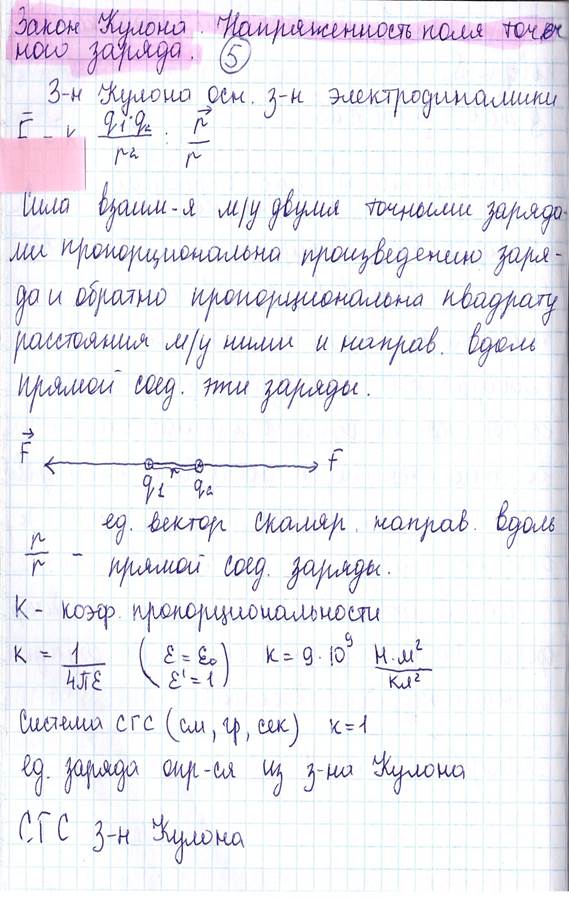 Закон Кулона. Напряженность поля точеч
ного заряда. 5
З-н Кулона осн. з-н электродинамики
q1·q2 / r2 : r⃗ / r
Сила взаим-я м/у двумя точными заряда-
ми пропорциональна произведению заря-
да и обратно пропорциональна квадрату
расстояния м/у ними и направ. вдоль
прямой соед. эти заряды.
F⃗ r F
q1 q2
r / r - ед. вектор скаляр. направ. вдоль
прямой соед. заряды.
К - коэф. пропорциональности
к = 1 / 4πε (ε = ε0 ε' = 1) к = 9·10⁹ Н·м² / кл²
Система СГС (см, гр, сек) к=1
ед. заряда опр-ся из з-на Кулона
СГС з-н Кулона